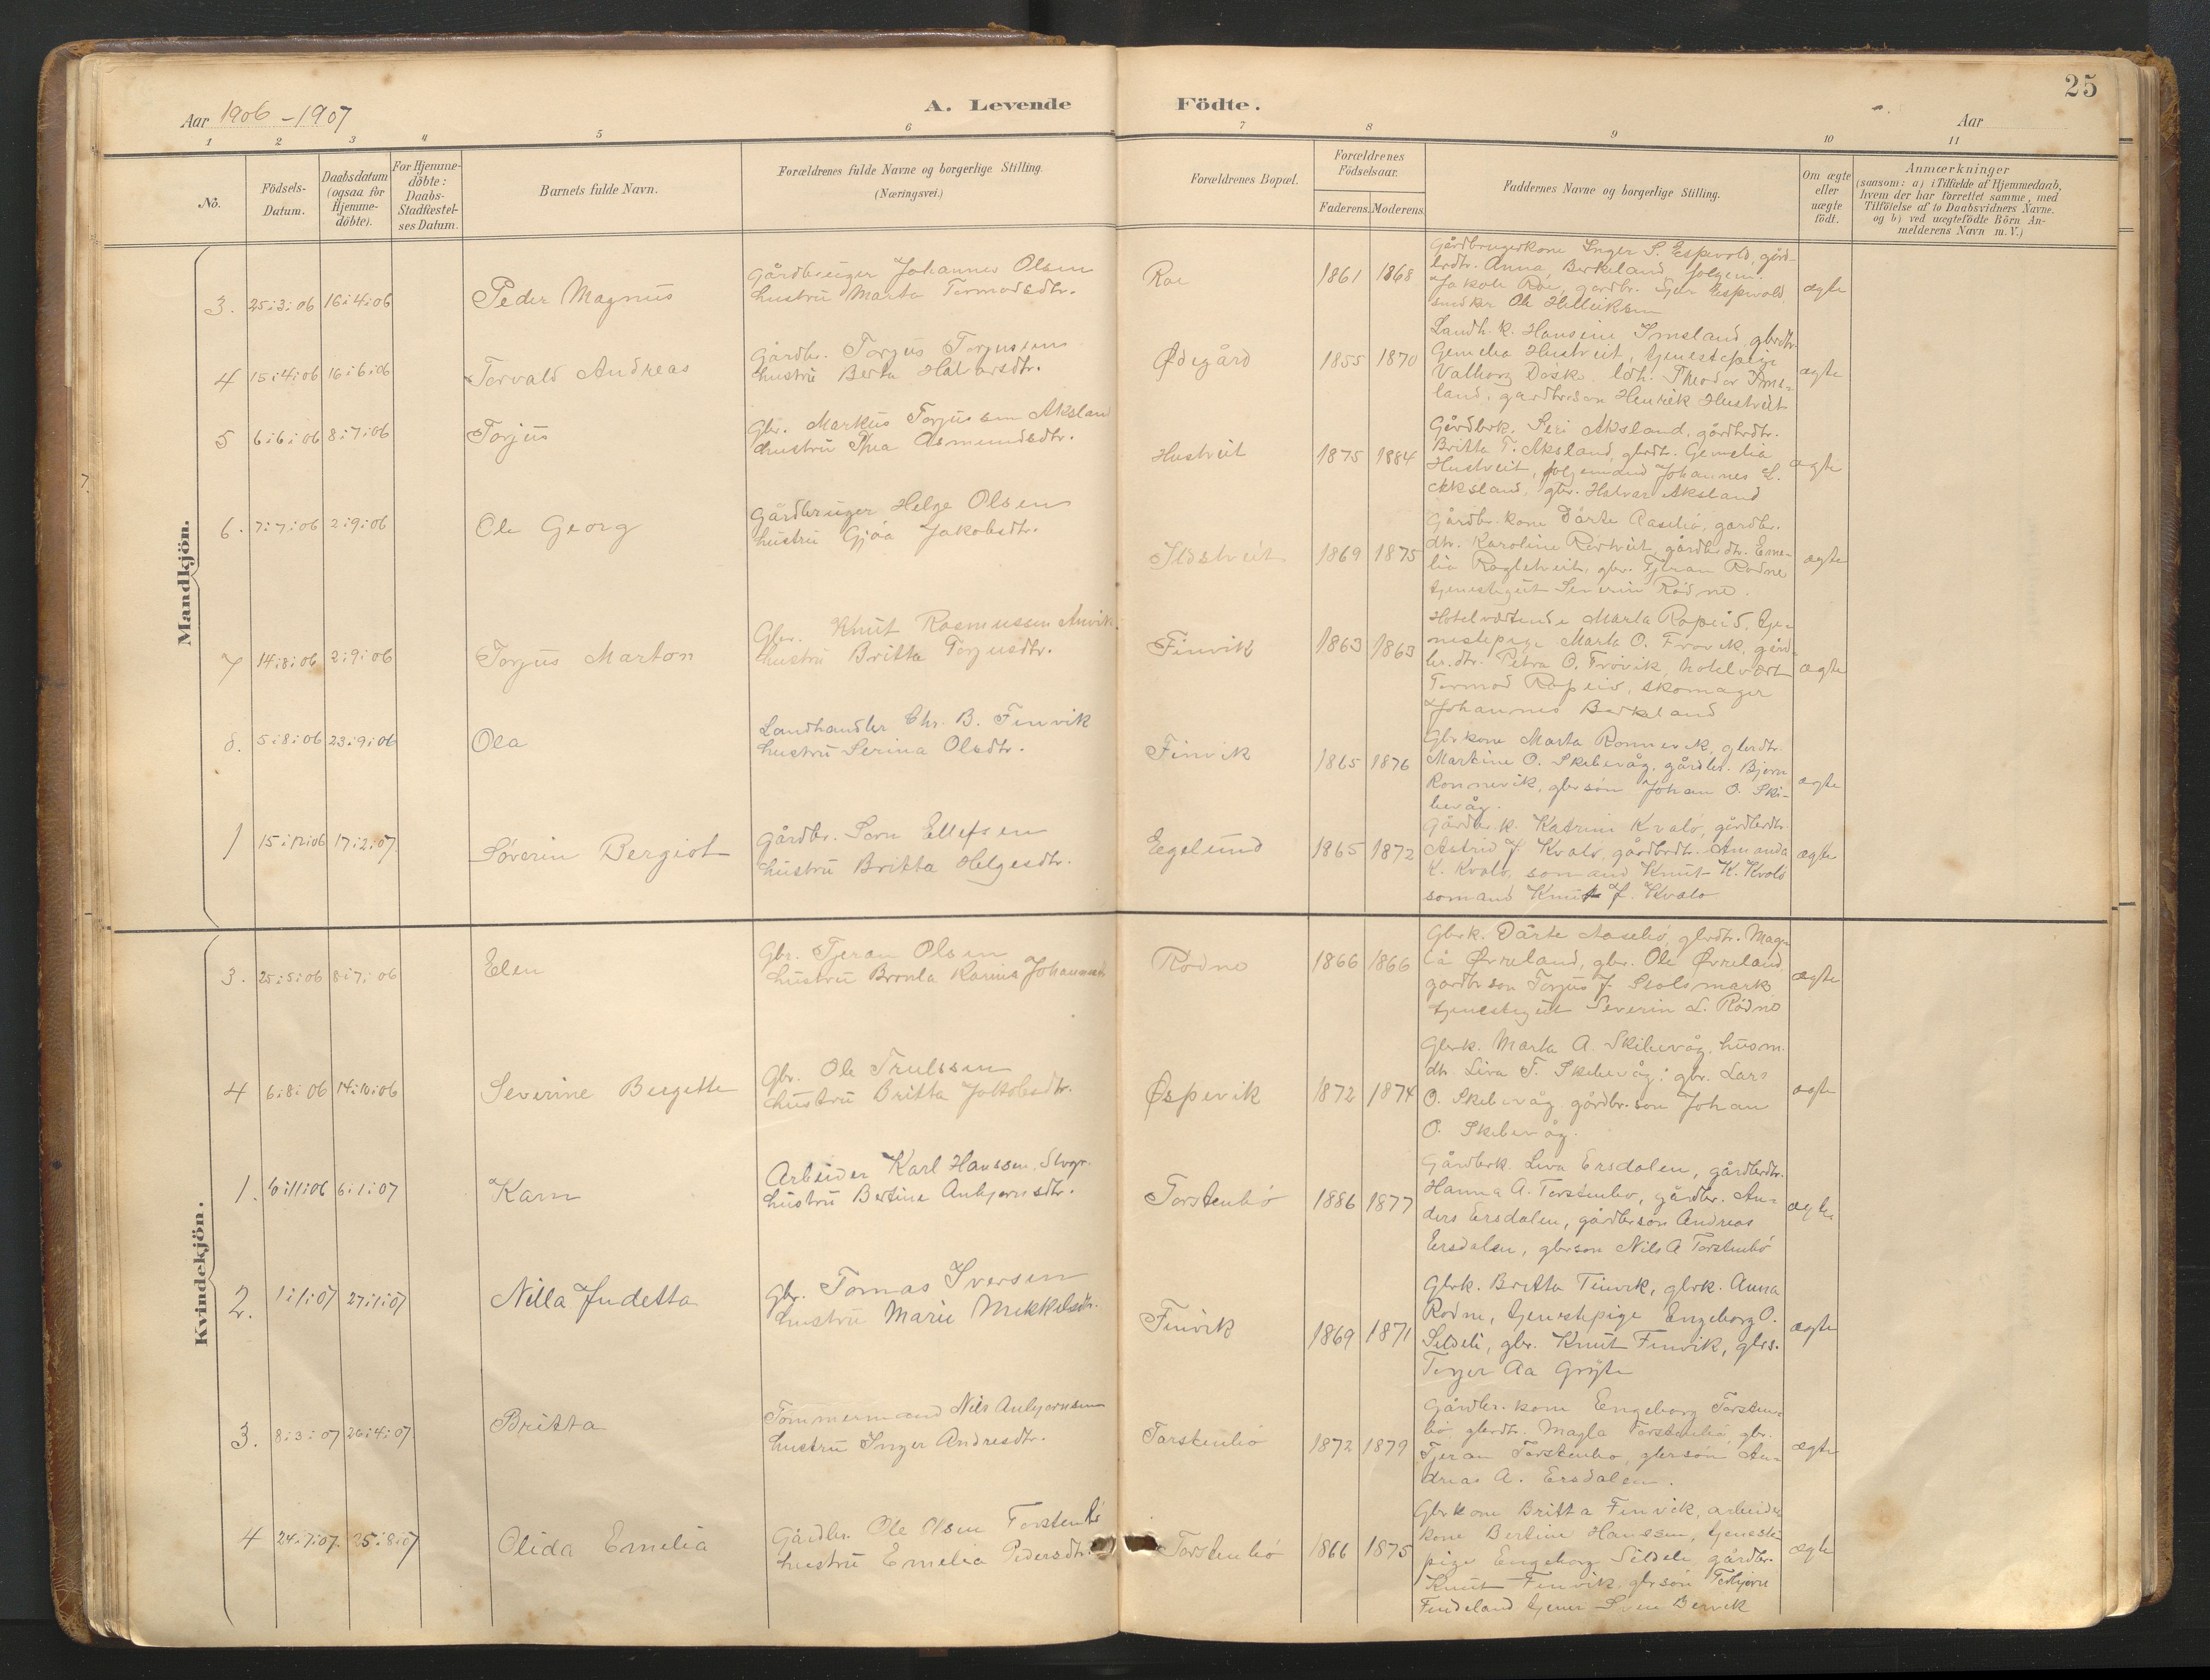 25
Aar 1906-1907
A. Levende Födte.
Aar
1 2 3 4 5 6 7 8 9 10 11
No.
Födsels-Datum.
Daabsdatum (ogsaa for Hjemme-döbte).
For Hjemme-döbte: Daabs-Stadfæstel-ses Datum.
Barnets fulde Navn.
Forældrenes fulde Navne og borgerlige Stilling.
(Næringsvei.)
Forældrenes Bopæl.
Forældrenes Födselsaar.
Faderens. Moderens.
Faddernes Navne og borgerlige Stilling.
Om ægte eller uægte födt.
Anmærkninger
(saasom: a) i Tilfælde af Hjemmedaab,
hvem der har forrettet samme, med
Tilföielse af to Daabsvidners Navne.
og b) ved uægtefödte Börn An-
melderens Navn m. V.)
Mandkjön.
3. 25:3:06 16:4:06 Peder Magnus
Gårdbruger Johannes Olsen
hustru Marta Tormodsdtr.
Roe 1861 1868
Gårdbrugerkone Inger S. Espevold, gård-
brdtr. Anna Berkeland, folgem.
Jakob Roe, gardbr. Sjur Espevold,
snedker Ole Helleiksen
ægte
4 15:4:06 16:6:06 Torvald Andreas
Gårdbr. Torjus Torjussen
hustru Berta Halvarsdtr.
Ødegård 1855 1870
Landh. k. Hansine Imsland, gbrdtr.
Gemelia Hustveit, tjenestepige
Valborg Doske, ldh. Theodor Ims-
land, gardbrson Henrik Hustveit
ægte
5 6:6:06 8:7:06 Torjus
Gbr. Markus Torjussen Aksland
hustru Thea Asmundsdtr.
Hustveit 1875 1884
Gårdbrk. Siri Aksland, gårdbrdtr.
Britta T. Aksland, gbrdtr. Gemelia
Hustveit, folgemand Johannes L.
Aksland, gbr. Halvar Aksland
ægte
6. 7:7:06 2:9:06 Ole Georg
Gårdbruger Helge Olsen
hustru Gjøa Jakobsdtr.
Ilstveit 1869 1875
Gårdbr. kone Dårte Aasebø, gardbr.
dtr. Karoline Røstveit, gårdbrdtr. Eme-
lia Ragletveit, gbr. Tjeran Rødne
tjenestegut Severin Rødne.
ægte
7 14:8:06 2:9:06 Torjus Marton
Gbr. Knut Rasmussen Anvik
hustru Britta Torjusdtr.
Finvik 1863 1863
Hotelværtinde Marta Ropeid, tje-
nestepige Marta O. Frøvik, gård-
br.dtr. Petra O. Frøvik, hotelvært
Tormod Ropeid, skomager
Johannes Berkeland
ægte
8. 5:8:06 23:9:06 Ola
Landhandler Chr. B. Finvik
hustru Serina Olsdtr.
Finvik 1865 1876
Gbrkone Marta Ronnevik, gbrdtr.
Martine O. Skibevåg, gårdbr. Bjorn
Ronnevik, gbrsøn Johan O. Ski-
bevåg.
ægte
1 15:12:06 17:2:07. Søverin Bergiot
Gårdbr. Sorn Ellefsen
hustru Britta Helgesdtr.
Eegelund 1865 1872
Gårdbr. k. Katrine Kvalo, gårdbrdtr.
Astrid J. Kvalo, gårdbrdtr. Amanda
K. Kvalo, somand Knut K. Kvalo
somand Knut J. Kvalo
ægte
Kvindekjön.
3. 25:5:06 8:7:06 Elen
Gbr. Tjeran Olsen
hustru Bronla Karina Johannesdtr
Rødne 1866 1866
Gbrk. Dårte Aasebø, gbrdtr. Mag-
la Øvreland, gbr. Ole Øvreland
gardbrson Torjus J. Stolsmark
tjenestegut Severin L. Rødne
ægte
4 6:8:06 14:10:06 Severine Bergette
Gbr. Ole Trulssen
hustru Britta Jakobsdtr.
Øspevik 1872 1874
Gbrk. Marta A. Skibevåg, husm.
dtr. Liva T. Skibevåg, gbr. Lars
O. Skibevåg, gårdbr.son Johan
O. Skibevåg.
ægte
1. 6:11:06 6:1:07 Karn
Arbeider Karl Hanssen,
hustru Bertine Anbjørnsdtr.
Torstenbø 1886 1877
Gårdbrk. Liva Ersdalen, gårdbrdtr.
Hanna A. Torstenbø, gårdbr. An-
ders Ersdalen, gårdbrson Andreas
Ersdalen, gbrson Nils A Torstenbø
ægte
2. 1:1:07 27:1:07 Nilla Judetta
gbr. Tomas Iversen
hustru Marie Mikkelsdtr.
Finvik 1869 1871
Gbrk. Britta Finvik, gbrk. Anna
Rødne, tjenestepige Engeborg O.
Seldeli, gbr. Knut Finvik, gbrs.
Torger Aa Grøjte
ægte
3. 8:3:07 26:4:07 Britta
Tømmermand Nils Anbjornsen
hustru Inger Andresdtr.
Torstenbø 1872 1879
Gårdbr. kone Engeborg Torsten-
bø, gbrdtr. Magla Torstenbø, gbr.
Tjeran Torstenbø, gbrsøn An-
dreas A. Ersdalen.
ægte
4 24:7:07. 25:8:07 Olida Emelia
Gårdbr. Ole Olsen Torstenbø
hustru Emelia Pedersdtr.
Torstenbø 1866 1875
Gbrkone Britta Finvik, arbeider-
kone Bertine Hanssen, tjeneste-
pige Engeborg Seldeli, gårdbr.
Knut Finvik, gbrsøn Torbjørn
Findeland tjener Sven Bervik
ægte